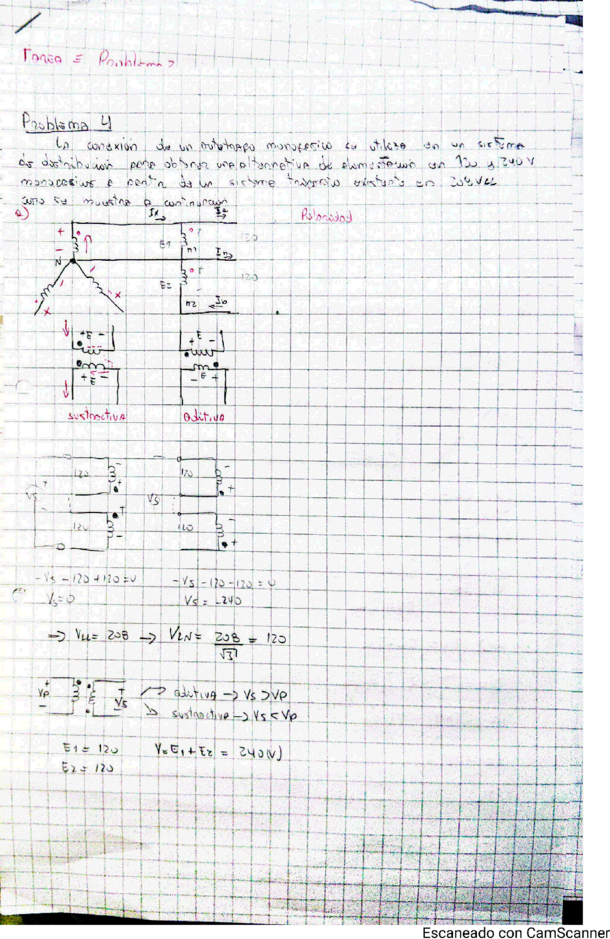 Tarea = Problema
Problema 4
La conexión de un autotrafo monofasico se utiliza en un sistema
de distribución para obtener una alternativa de alimentación en 120 y 240 V
monofasicos a partir de un sistema trifasico existente en 208 VLL
como se muestra a continuacion
a) I1 I2 Polaridad
+ E1 n1 120
-
N In
E2 120
n2 I0
x x
+E- + E -
+ E - - E +
sustractiva aditiva
120 - 120 -
+ +
Vs Vs
120 + 120 -
- +
-Vs - 120 + 120 = 0 -Vs - 120 - 120 = 0
Vs = 0 Vs = -240
⇒ VLL = 208 → VLN = 208/√3 = 120
+ Vp - + Vs - aditiva → Vs > Vp
sustractiva → Vs < Vp
E1 = 120 V = E1 + E2 = 240 (V)
E2 = 120
Escaneado con CamScanner